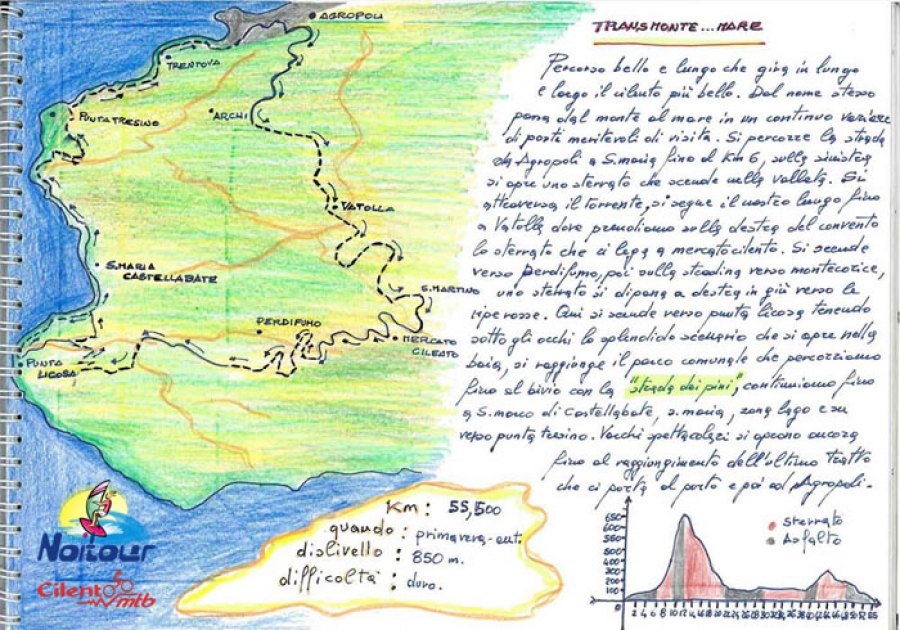 AGROPOLI
TRENTOVA
PUNTA TRESINO
ARCHI
VATOLLA
S. MARIA
CASTELLABATE
S. MARTINO
PERDIFUMO
MERCATO
CILENTO
PUNTA
LICOSA
TRANSMONTE...MARE
Percorso bello e lungo che gira in lungo
e largo il cilento più bello. Dal nome stesso
porta dal monte al mare in un continuo variare
di posti meritevoli di visita. Si percorre la strada
da Agropoli a S. maria fino al Km 6, sulla sinistra
si apre uno sterrato che scende nella vallata. Si
attraversa il torrente, si segue il nostro lungo fino
a Vatolla dove prendiamo sulla destra del convento
lo sterrato che ci lega a mercato cilento. Si scende
verso Perdifumo, poi sulla stradina verso montecorice,
uno sterrato si dipana a destra in giù verso le
ripe rosse. Qui si scende verso punta licosa tenendo
sotto gli occhi lo splendido scenario che si apre nella
baia, si raggiunge il parco comunale che percorriamo
fino al bivio con la "strada dei pini", continuiamo fino
a S. marco di Castellabate, s. maria, zona lago e su
verso punta tresino. Vecchi spettacolari si aprono ancora
fino al raggiungimento dell'ultimo tratto
che ci porta al porto e poi ad Agropoli.
Km: 55,500
quando: primavera-aut.
dislivello: 850 m.
difficoltà: duro.
Noitour
Cilento
mtb
sterrato
Asfalto